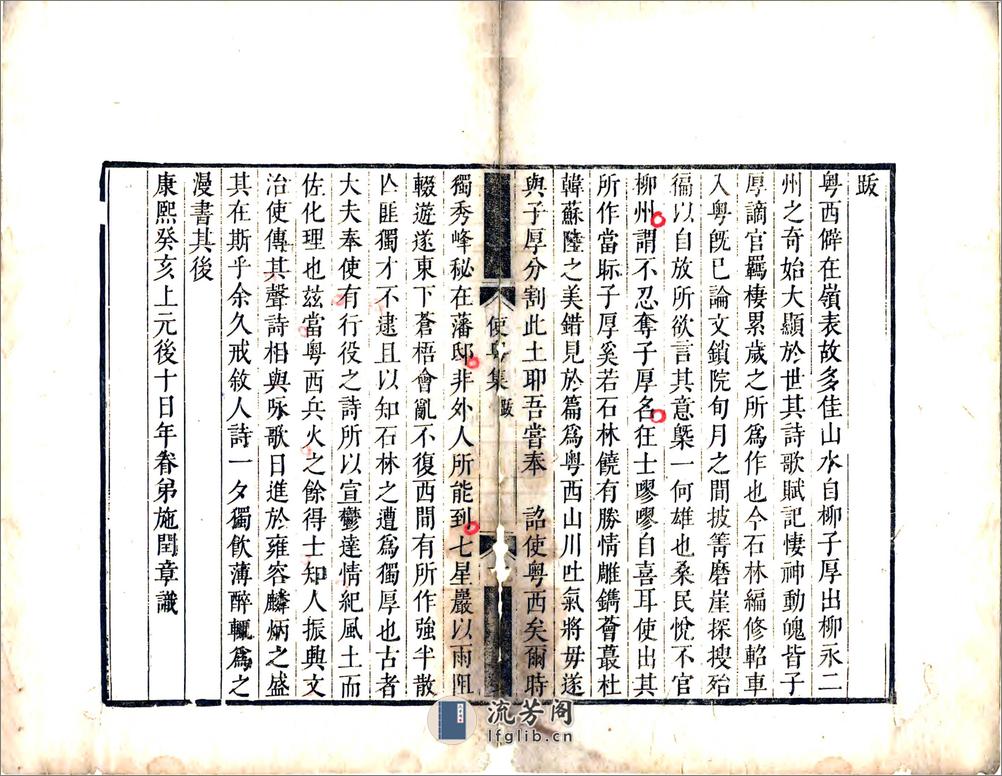 跋
粤西僻在嶺表故多佳山水自柳子厚出柳永二
州之奇始大顯於世其詩歌賦記悽神動魄皆子
厚謫官羈棲累歲之所爲作也今石林編修軺車
入粤旣已論文鎖院旬月之間披菁磨崖探搜殆
徧以自放所欲言其意槩一何雄也桑民悅不官
柳州謂不忍奪子厚名狂士嘐嘐自喜耳使出其
所作當眎子厚奚若石林饒有勝情雕鐫薈蕞杜
韓蘇陸之美錯見於篇爲粤西山川吐氣將毋遂
與子厚分割此土耶吾嘗奉 詔使粤西矣爾時
使粤集 跋 一
獨秀峰秘在藩邸非外人所能到七星巖以雨阻
輟遊遂東下蒼梧會亂不復西間有所作強半散
亾匪獨才不逮且以知石林之遭爲獨厚也古者
大夫奉使有行役之詩所以宣鬱達情紀風土而
佐化理也玆當粤西兵火之餘得士知人振興文
治使傳其聲詩相與咏歌日進於雍容麟炳之盛
其在斯乎余久戒敘人詩一夕獨飲薄醉輒爲之
漫書其後
康熙癸亥上元後十日年眷弟施閏章識
流芳阁
lfglib.cn